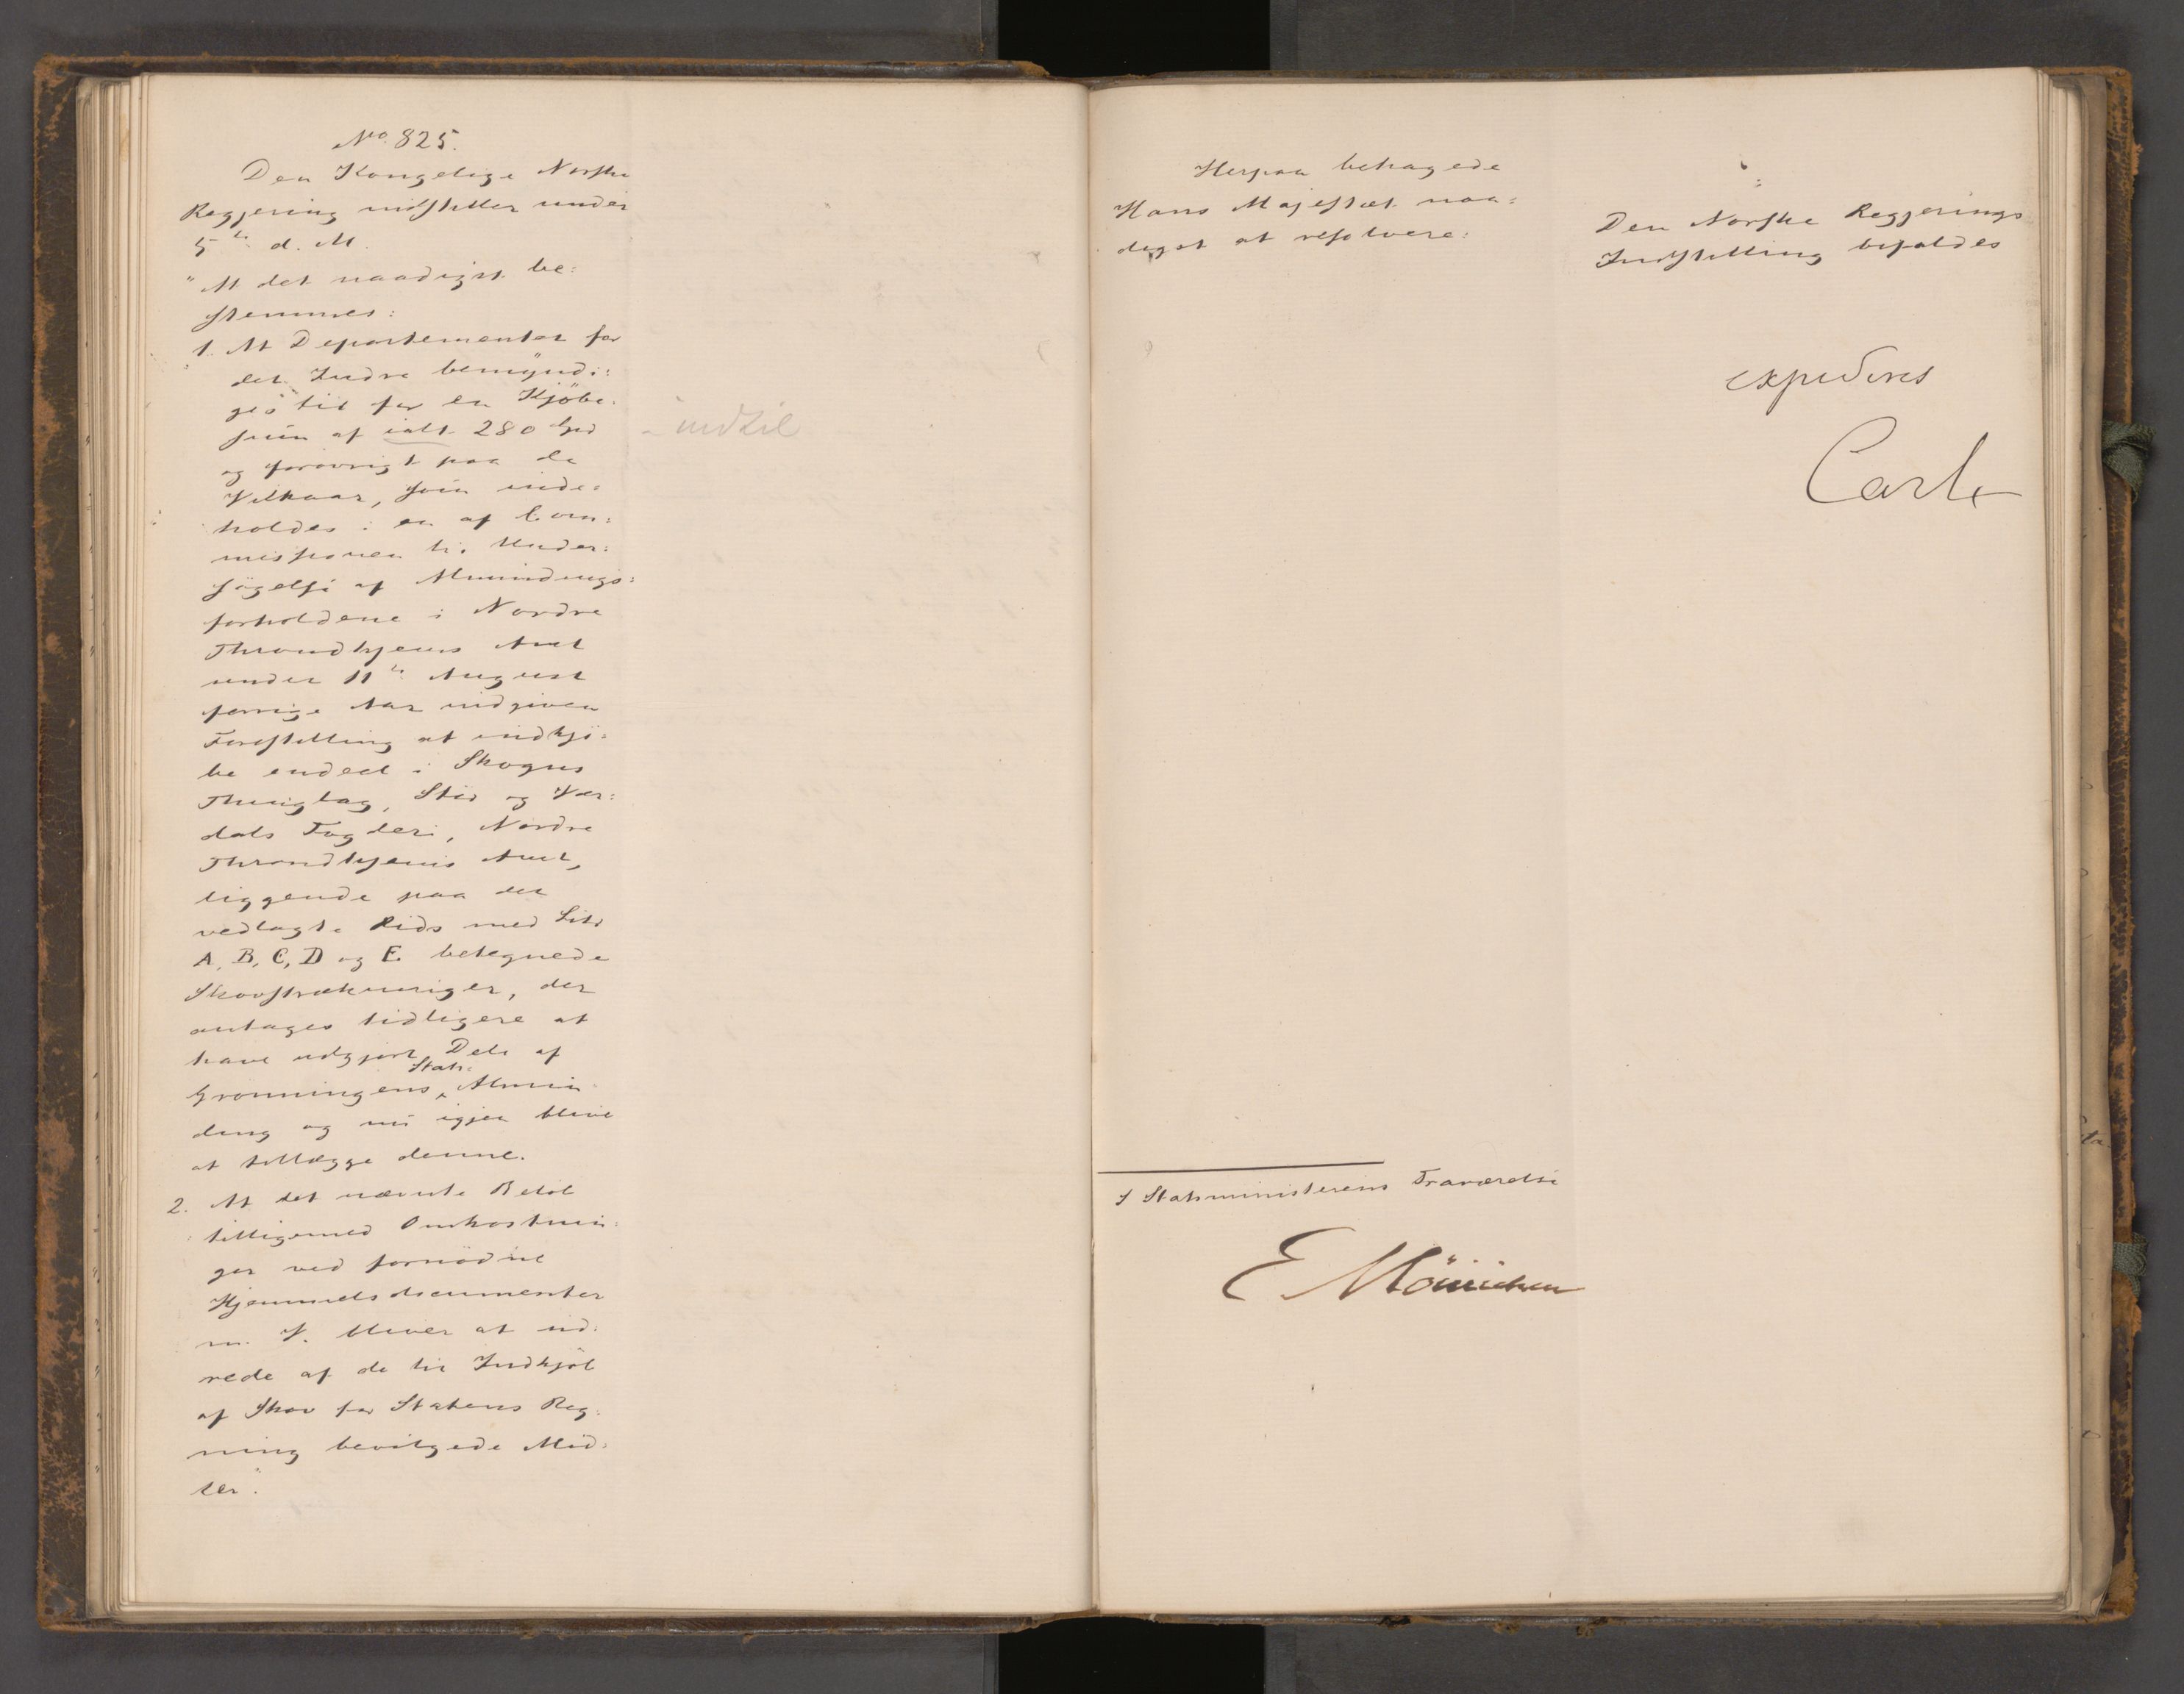 No 825.
Den Kongelige Norske
Regjering indstiller under
5te d. M.
"At det naadigst be=
stemmes:
1. At Departementet for
det Indre bemyndi=
ges til for en Kjöbe=
sum af ialt 280 Spd
og forøvrigt paa de
Vilkaar, som inde=
holdes i en af Com=
missionen til Under=
søgelse af Almindings=
forholdene i Nordre
Throndhjems Amt
under 11te August
forrige Aar indgiven
Forestilling at indkjö=
be endeel i Skogns
Thinglag, Stör og Vær=
dals Fogderi, Nordre
Throndhjems Amt,
liggende paa det
vedlagte Rids med Litr
A, B, C, D og E betegnede
Skovstrækninger, der
antages tidligere at
have udgjort Dele af
Grønningens Stats=
Almin=
ding og nu igjen blive
at tillægge denne.
2. At det nævnte Beløb
tilligemed Omkostnin=
ger ved fornødne
Hjemmelsdocumenter
m. V. bliver at ud=
rede af de til Indkjøb
af Skov for Statens Reg=
ning bevilgede Mid=
ler".
- indtil
Herpaa behagede
Hans Majestæt naa=
digst at resolvere:
I Statsministerens Fraværelse
E Mönichen
Den Norske Regjerings
Indstilling bifaldes
expederes
Carl